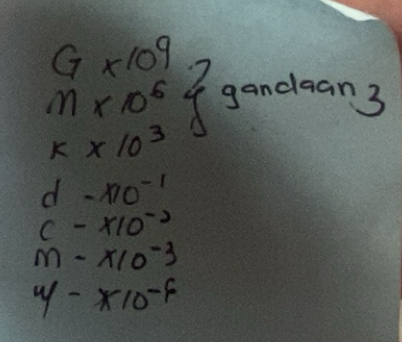 G × 10⁹
M × 10⁶ } gandaan 3
K × 10³
d - ×10⁻¹
c - ×10⁻²
m - ×10⁻³
µ - ×10⁻⁶